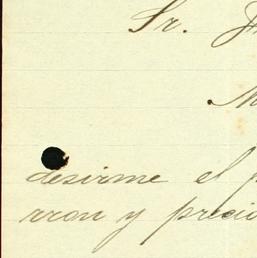 Sr.
desirme el
rron y precio